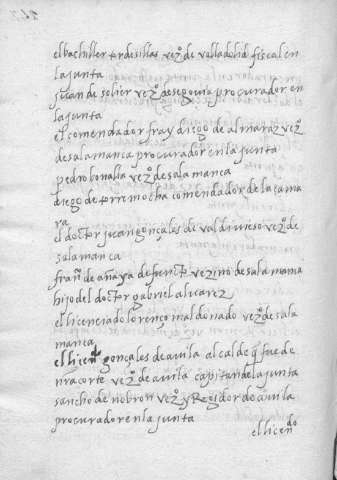 el bachiller tordesillas vezº de valladolid fiscal en
la junta
juan de solier vezº de segovia procurador en
la junta
el comendador fray diego de almaraz vezº
de salamanca procurador en la junta
pedro bonalla vezº de salamanca
diego de torremocha comendador de la cama
ra
el doctor juan gonçales de valdivieso vezº de
salamanca
franº de anaya defunctº vezino de salamanca
hijo del doctor gabriel alvarez
el licenciado lorenço maldonado vezº de sala
manca
el licendº gonçales de avila alcalde q fue de
nra corte vezº de avila capitan de la junta
sancho de vezº y Regidor de avila
procurador en la junta
el licendo